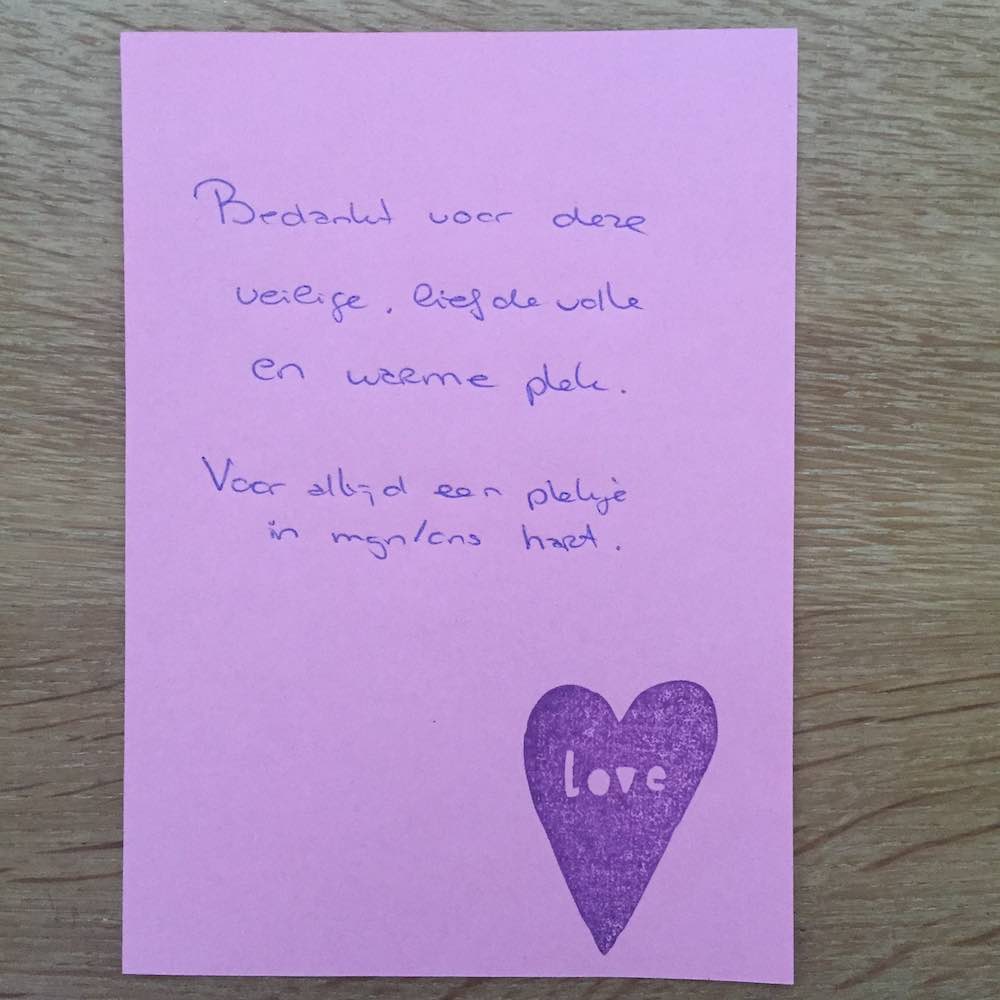 Bedankt voor deze
veilige, liefdevolle
en warme plek.
Voor altijd een plekje
in mijn/ons hart.
love